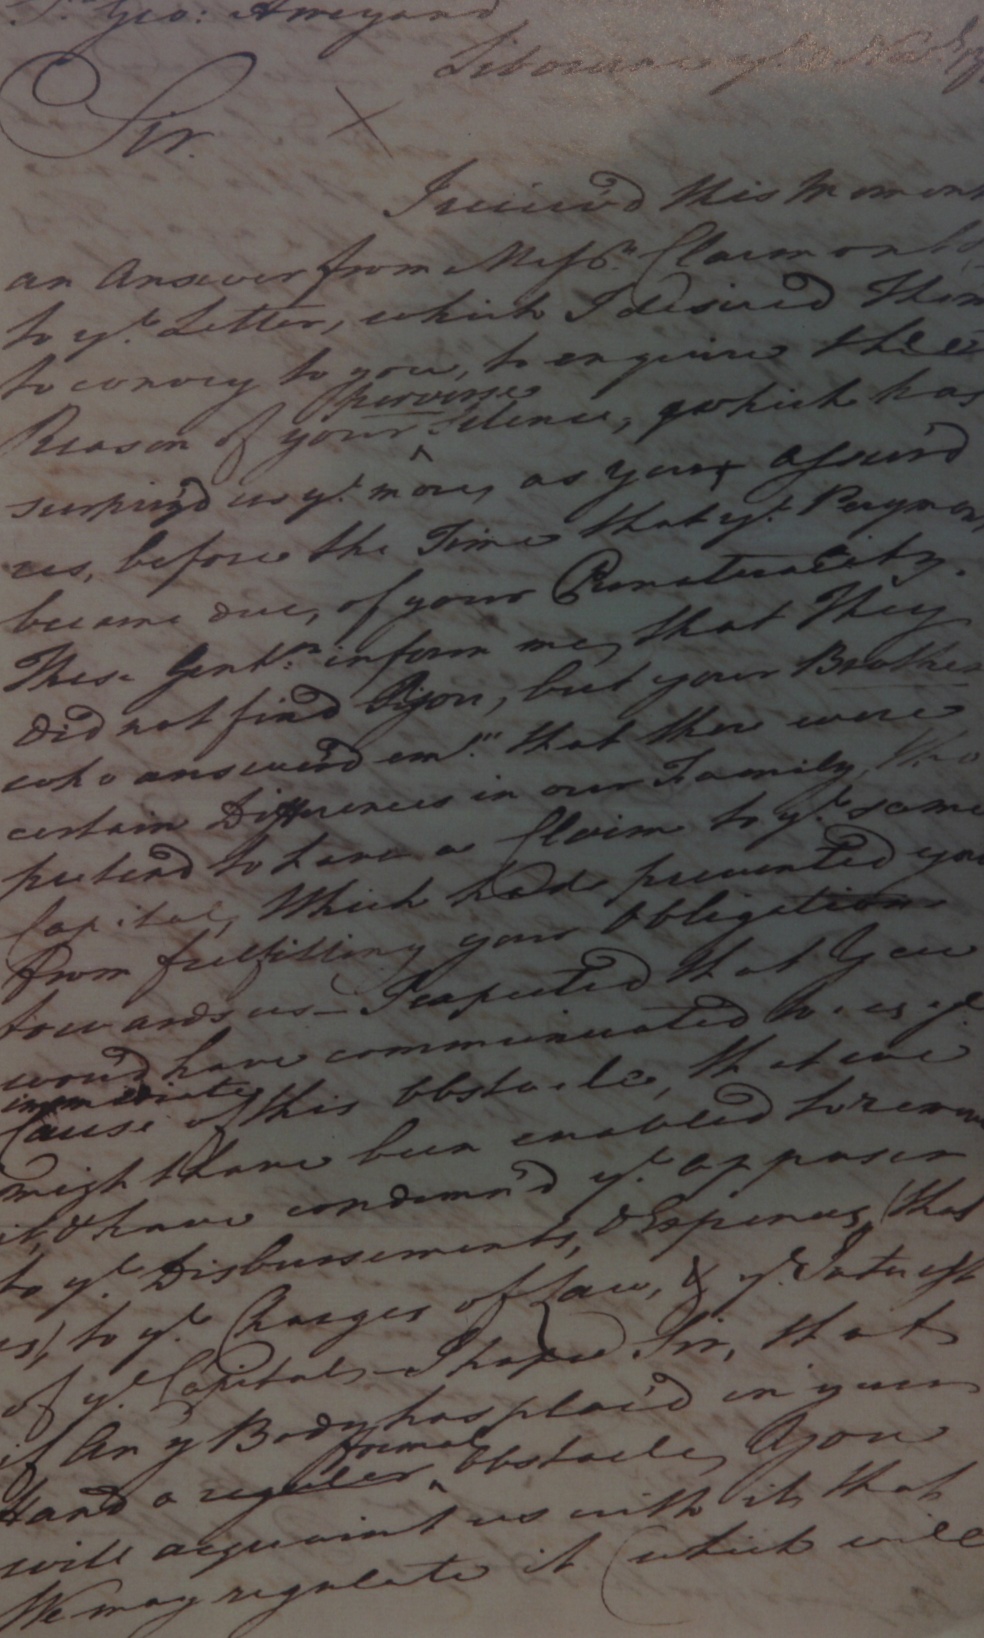 Geo: Amyand
Libourne yᵉ
Sir.
I receiv'd this Moment
an Answer from Messʳˢ. Clairmonts
to yᵉ. Letter, which I desired Them
to convey to you, to enquire the
perverse
Reason of your ^ Silence, which has
surpriz'd us yᵉ. more, as you assur'd
us, before the Time that yᵉ. Payment
became due, of your Punctuality.
These Gentⁿ. inform me, that They
did not find you, but your Brother
who answer'd em "that there were
certain Differences in our Family, who
pretend to have a Claim to yᵉ. same
Capital, Which had prevented you
from fulfilling your Obligations
towards us — I expected that You
wou'd have communicated to us yᵉ.
immediate
Cause of this Obstacle, that we
might have been enabled to remove
it, & have condemn'd yᵉ. opposer
to yᵉ. Disbursements, & Expences, (that
is) to yᵉ. Charges of Law, & yᵉ. Interest
of yᵉ. Capital — I hope Sir, that
if Any Body has plac'd in your
formal
Hand a regular ^ Obstacle, you
will acquaint us with it, that
We may regulate it (which will